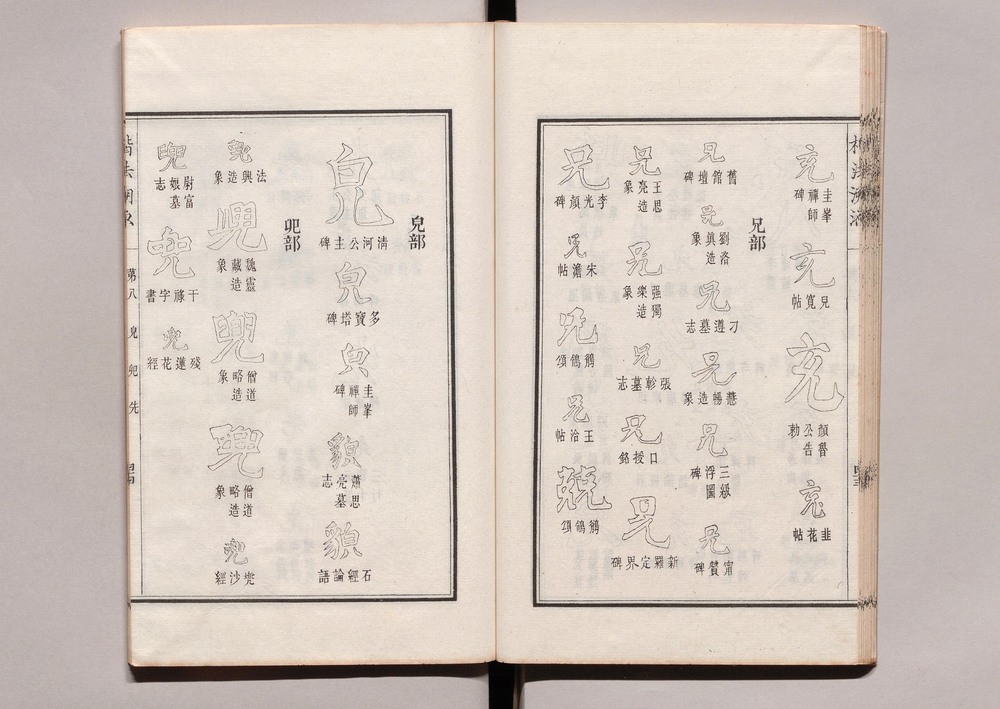 充
圭峯禪師碑
充
兒寬帖
充
顏魯公告勅
充
韭花帖
兄部
兄
舊館壇碑
兄
劉洛眞造象
兄
刁遵墓志
兄
慧暢造象
兄
三級浮圖碑
兄
甯贙碑
兄
王思亮造象
兄
强獨樂造象
兄
張軫墓志
兄
口授銘
兄
新羅定界碑
兄
李光顏碑
兄
宋澹帖
兄
鶺鴒頌
兄
王洽帖
兢
鶺鴒頌
皃部
皃
清河公主碑
皃
多寶塔碑
皃
圭峯禪師碑
貌
蕭思亮墓志
貌
石經論語
兜部
兜
法興造象
兜
魏靈藏造象
兜
僧道略造象
兜
僧道略造象
兜
兜沙經
兜
尉富娘墓志
兜
干祿字書
兜
殘蓮花經
楷法溯源
第八
皃
兜
先